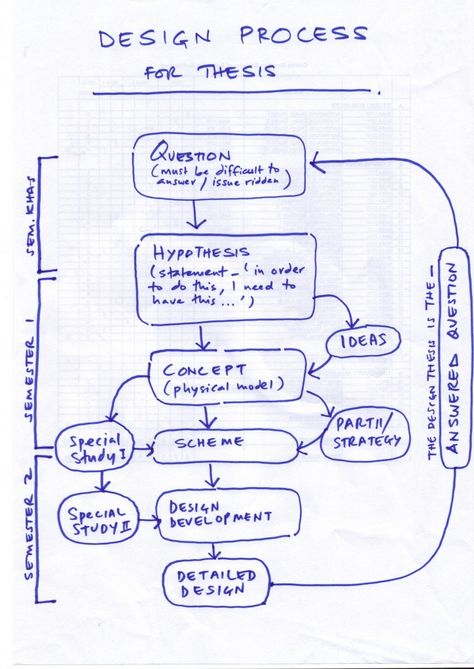 DESIGN PROCESS
FOR THESIS
QUESTION
(must be difficult to
answer / issue ridden)
SEM. KHAS
HYPOTHESIS
(statement – 'in order
to do this, I need to
have this ...')
IDEAS
SEMESTER 1
CONCEPT
(physical model)
PARTI/
STRATEGY
Special
Study I
SCHEME
SEMESTER 2
Special
STUDY II
DESIGN
DEVELOPMENT
DETAILED
DESIGN
THE DESIGN THESIS IS THE –
ANSWERED QUESTION